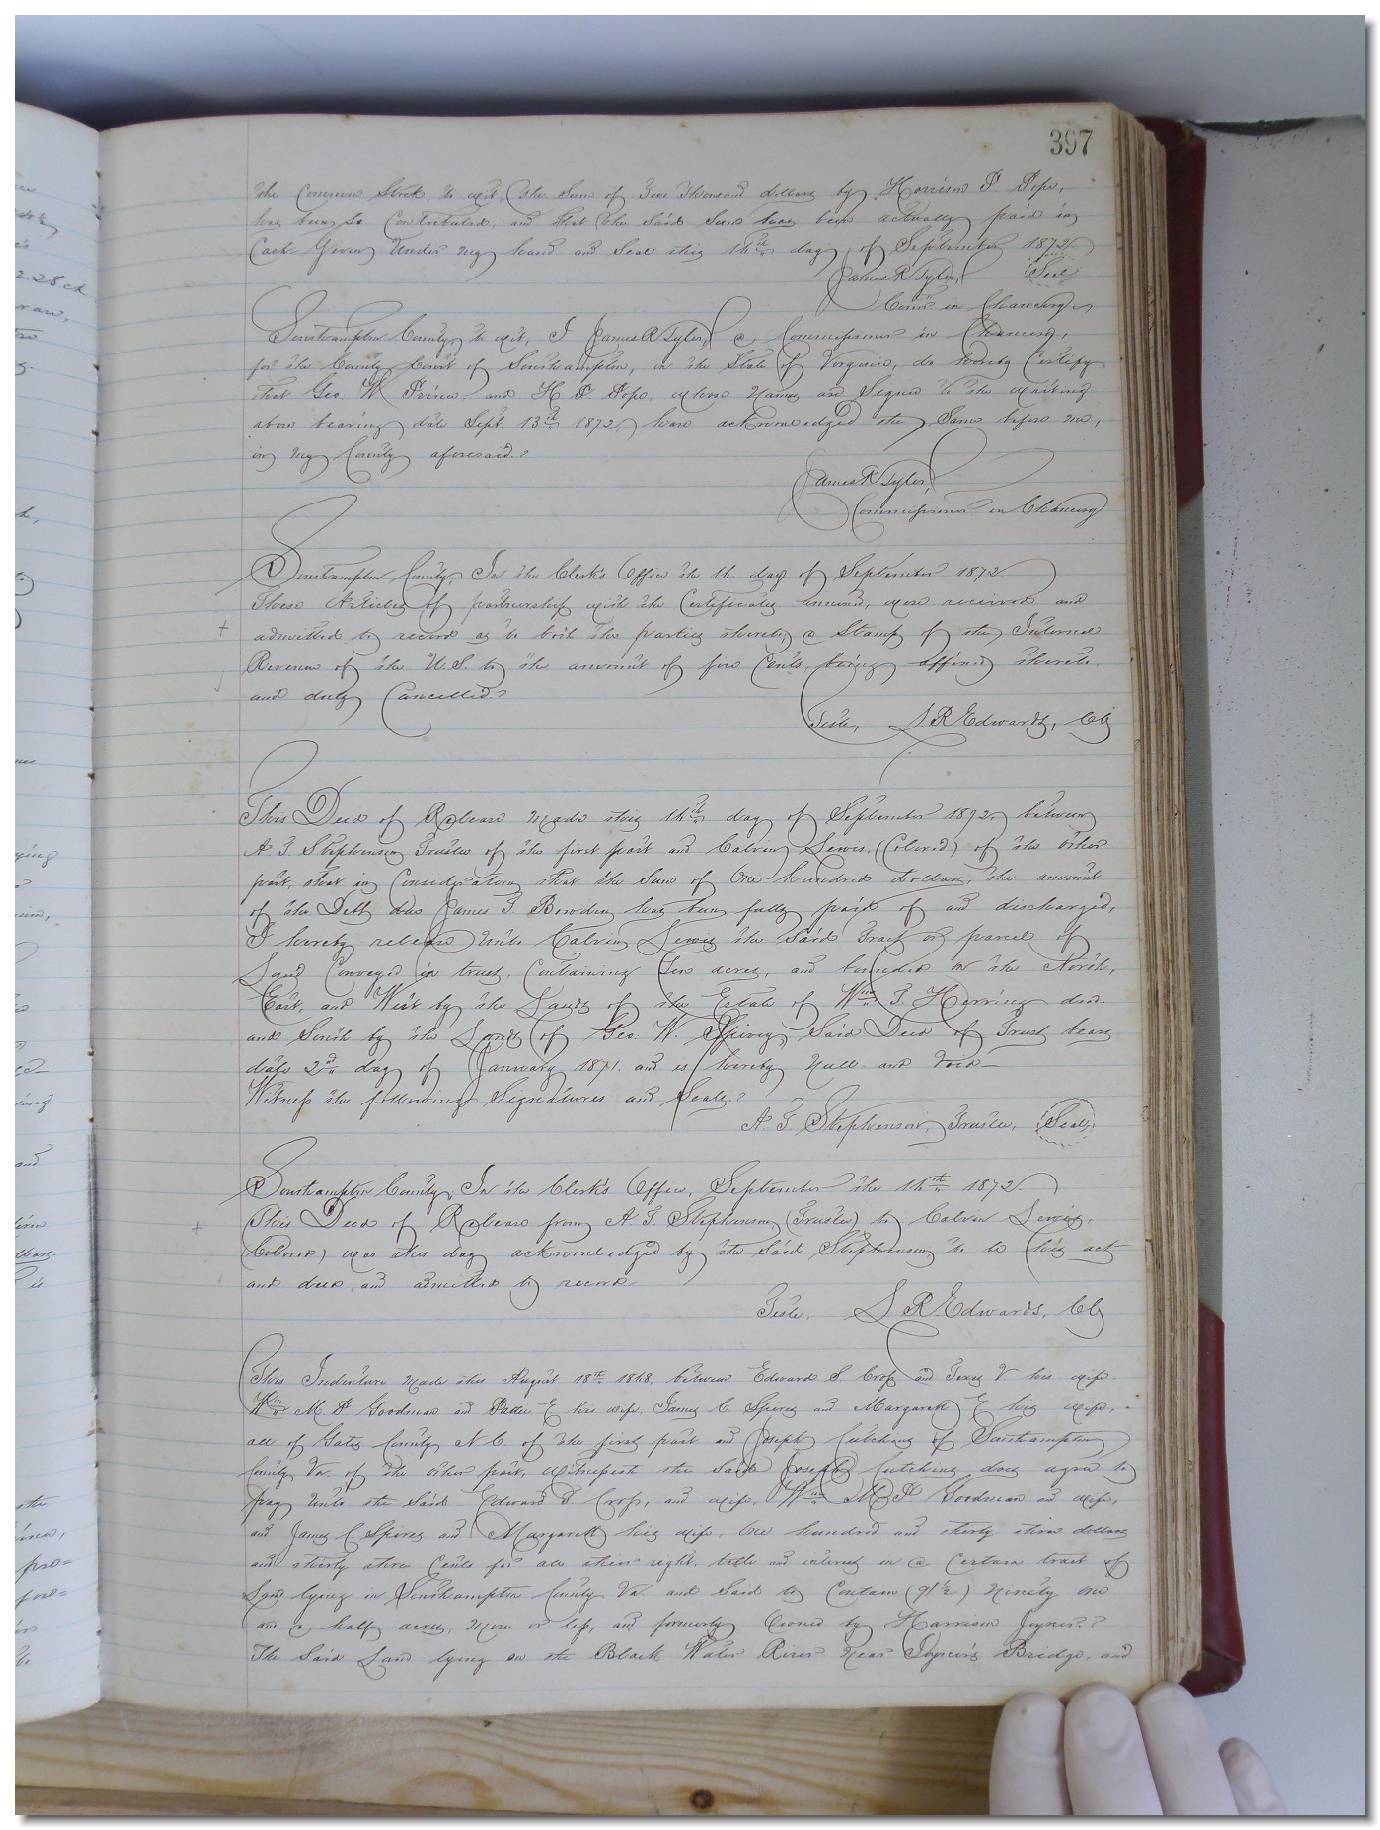 397
the Common Stock to wit, the Sum of Two Thousand dollars by Harrison P. Pope,
has been so Contributed, and that the said Sum has been actually paid in
Cash Given Under my hand and Seal this 14th day of September 1872.
James R Tyler, Seal
Comr in Chancery
Southampton County, to wit, I James R Tyler, a Commissioner in Chancery,
for the County Court of Southampton, in the State of Virginia, do hereby Certify
that Geo. W. and H. P. Pope, whose Names are Signed to the writing
above bearing date Sept. 13th 1872, have acknowledged the Same before me,
in my County aforesaid.
James R Tyler,
Commissioner in Chancery
Southampton County, In the Clerk's Office the 14 day of September 1872
These Articles of partnership with the Certificates annexed, were received and
admitted to record as to both the parties thereto, a Stamp of the Internal
Revenue of the U.S. to the amount of five Cents, being affixed thereto
and duly Cancelled.
Teste, L R Edwards, Clk
This Deed of Release Made this 14th day of September 1872, between
A. T. Stephenson Trustee of the first part and Calvin Lewis, (Colored) of the other
part, that in Consideration that the Sum of One hundred dollars, the amount
of the Debt due James T. Bowden has been fully paid of and discharged,
I hereby release Unto Calvin Lewis the Said Tract or parcel of
Land Conveyed in trust, Containing Ten acres, and bounded on the North,
East, and West by the Lands of the Estate of Wm T. Herring decd.
and South by the Lands of Geo. W. Spivey, Said Deed of Trust bears
date 2nd day of January 1871. and is hereby Null and Void
Witness the following Signatures and Seals.
A. T. Stephenson, Trustee, Seal
Southampton County, In the Clerk's Office, September the 14th 1872.
This Deed of Release from A. T. Stephenson (Trustee) to Calvin Lewis,
(Colored) was this day acknowledged by the Said Stephenson to be his act
and deed, and admitted to record.
Teste, L R Edwards, Clk
This Indenture Made this August 18th 1868. between Edward S Cross and V his wife
Wm M. P Goodman and E his wife, James C Spivey and Margarett E his wife,
all of Gates County N. C. of the first part and Joseph Cutchins of Southampton
County Va. of the other part, Witnesseth the Said Joseph Cutchins does agree to
pay Unto the Said Edward S. Cross, and wife, Wm M P. Goodman and wife,
and James C Spivey and Margarett his wife, One hundred and thirty three dollars
and thirty three Cents for all their right, title and interest in a Certain tract of
Land lying in Southampton County Va. and Said to Contain (91½) Ninety one
and a half acres, More or less, and formerly Owned by Harrison Joyner.
The Said Land lying on the Black Water River Near Joyner's Bridge, and